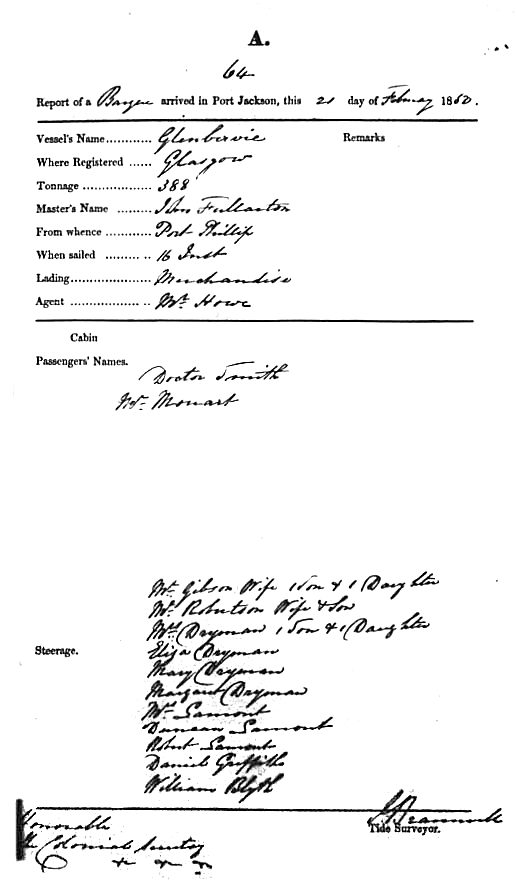 A.
64
Report of a Barque arrived in Port Jackson, this 21 day of Febuay 1850.
Vessel's Name............ Glenbervie
Remarks
Where Registered ...... Glasgow
Tonnage .................. 388
Master's Name ......... Jno Fullarton
From whence ............ Port Phillip
When sailed ......... .. 16 Inst
Lading..................... Merchandise
Agent .................. .. Mr. Howe
Cabin
Passengers' Names.
Doctor Smith
Mr. Mouart
Mr. Gibson Wife 1 Son & 1 Daughter
Mr. Robertson Wife & Son
Mrs Dryman 1 Son & 1 Daughter
Steerage. Eliza Dryman
Mary Dryman
Margaret Dryman
Mrs Lamont
Duncan Lamont
Robert Lamont
Daniel Griffiths
William Blyth
Tide Surveyor.
Honorable
The Colonial Secretary